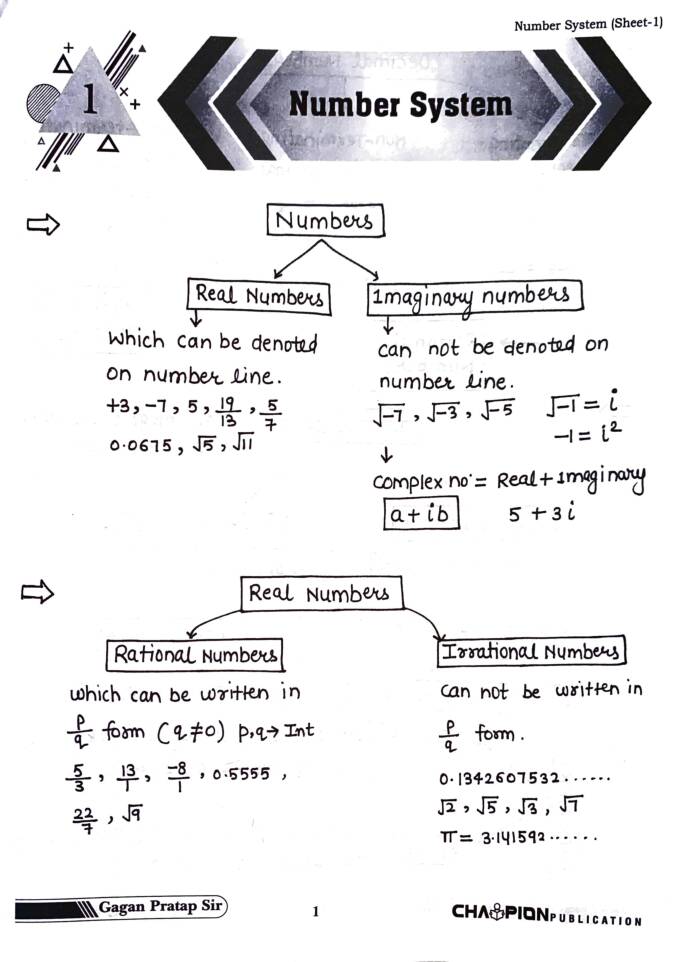 Number System (Sheet-1)
1
Number System
Numbers
Real Numbers
Imaginary numbers
which can be denoted
on number line.
+3, -7, 5, 19/13, 5/7
0.0675, √5, √11
can not be denoted on
number line.
√-7, √-3, √-5 √-1 = i
-1 = i²
complex no. = Real + Imaginary
a + ib 5 + 3i
Real Numbers
Rational Numbers
which can be written in
p/q form (q≠0) p,q→ Int
5/3, 13/1, -8/1, 0.5555,
22/7, √9
Irrational Numbers
can not be written in
p/q form.
0.1342607532......
√2, √5, √3, √7
π = 3.141592......
Gagan Pratap Sir
1
CHAMPION PUBLICATION